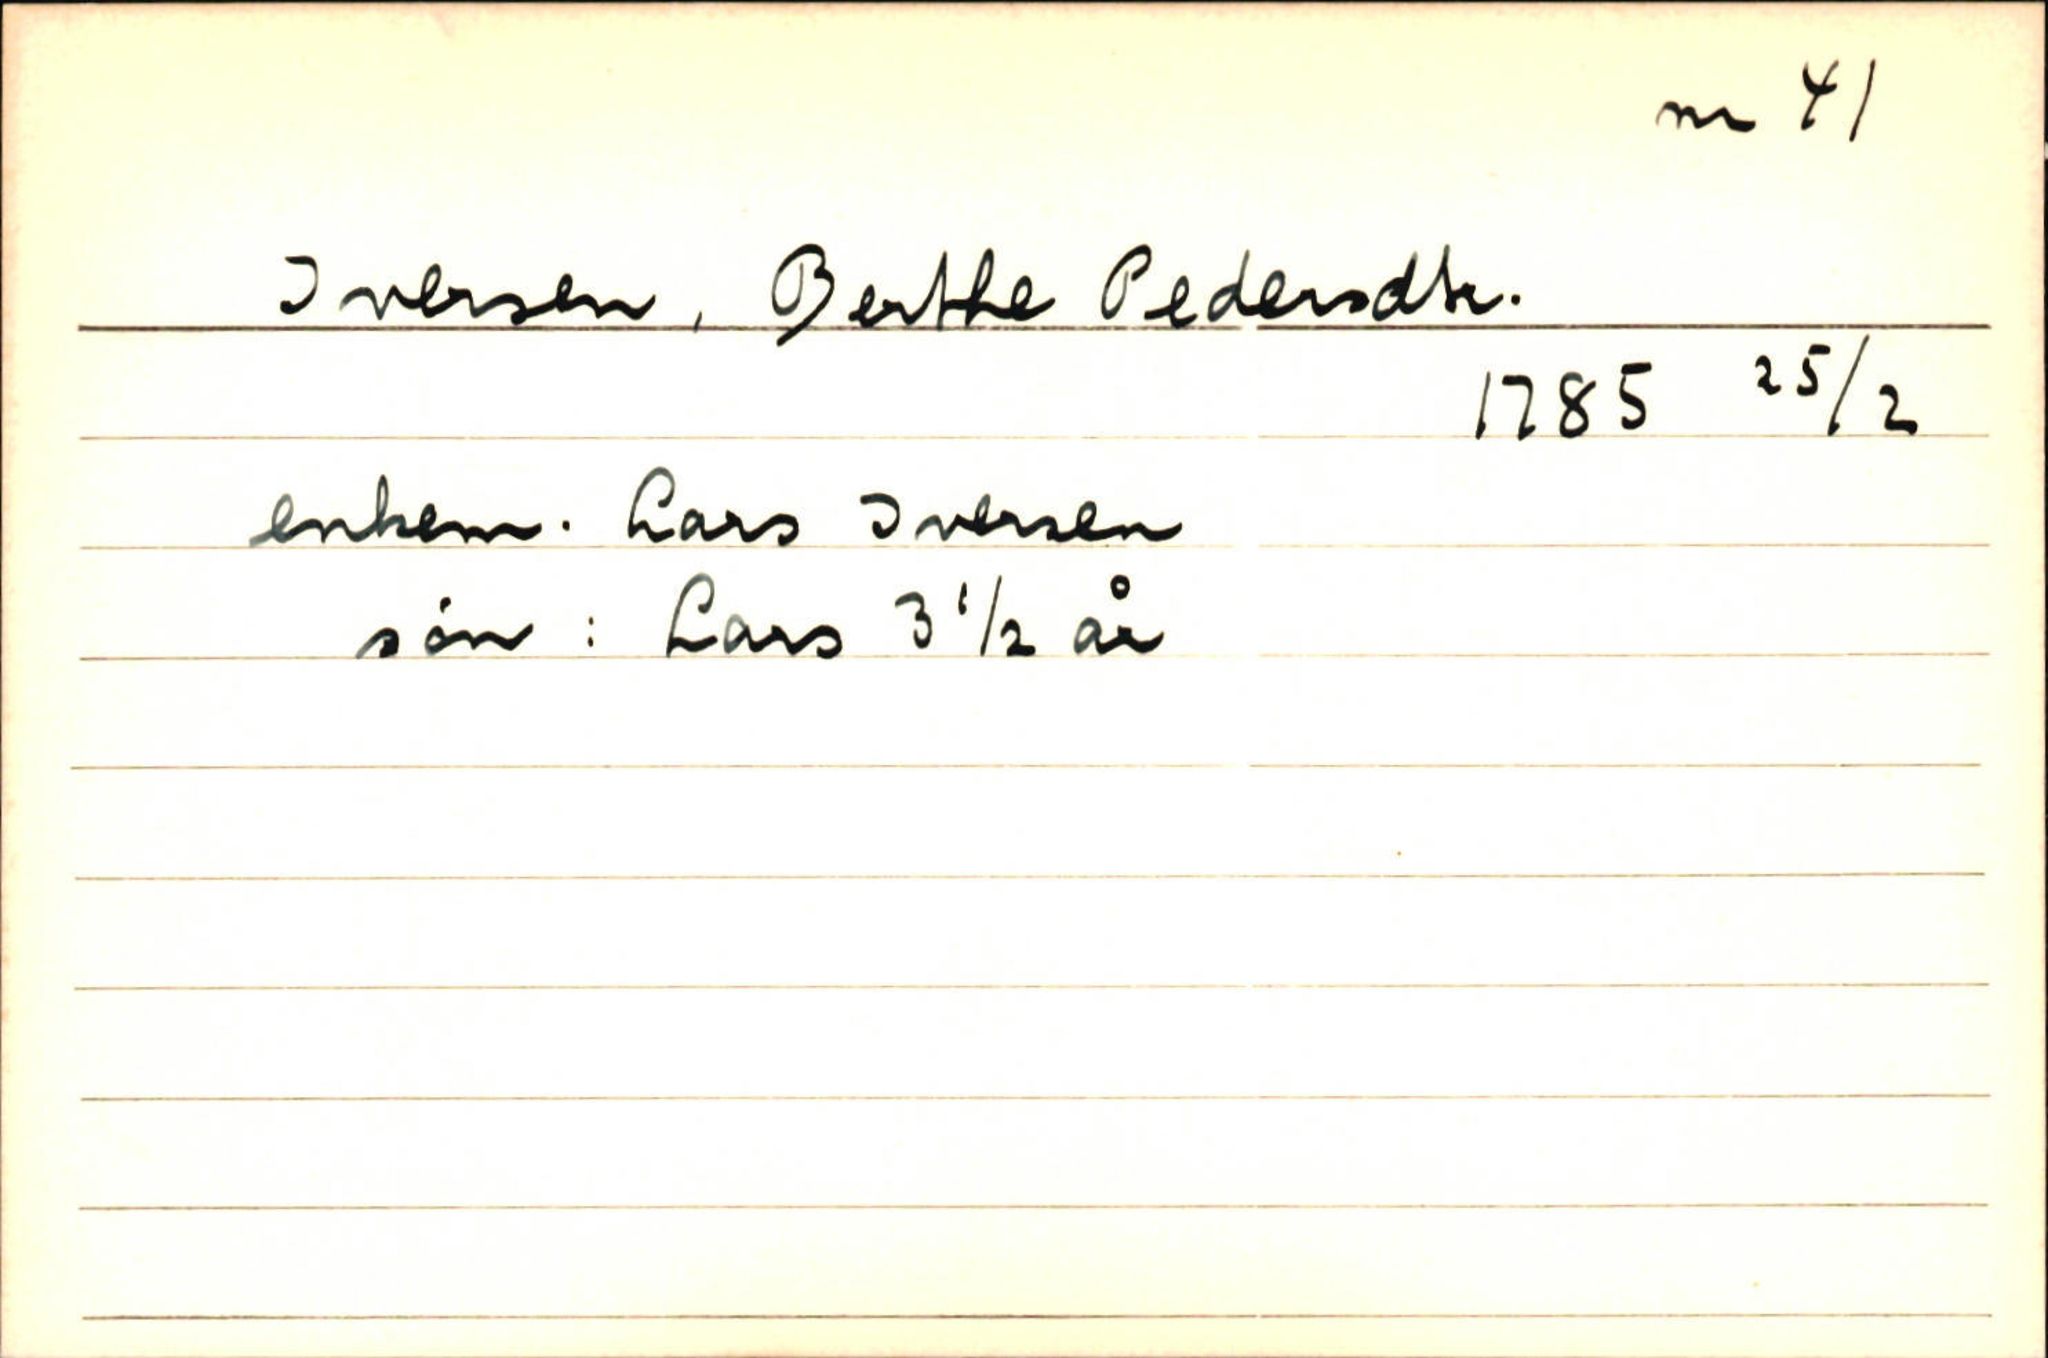 nr 41
Iversen, Berthe Pedersdtr.
1785 25/2
enkem. Lars Iversen
søn : Lars 3 1/2 år